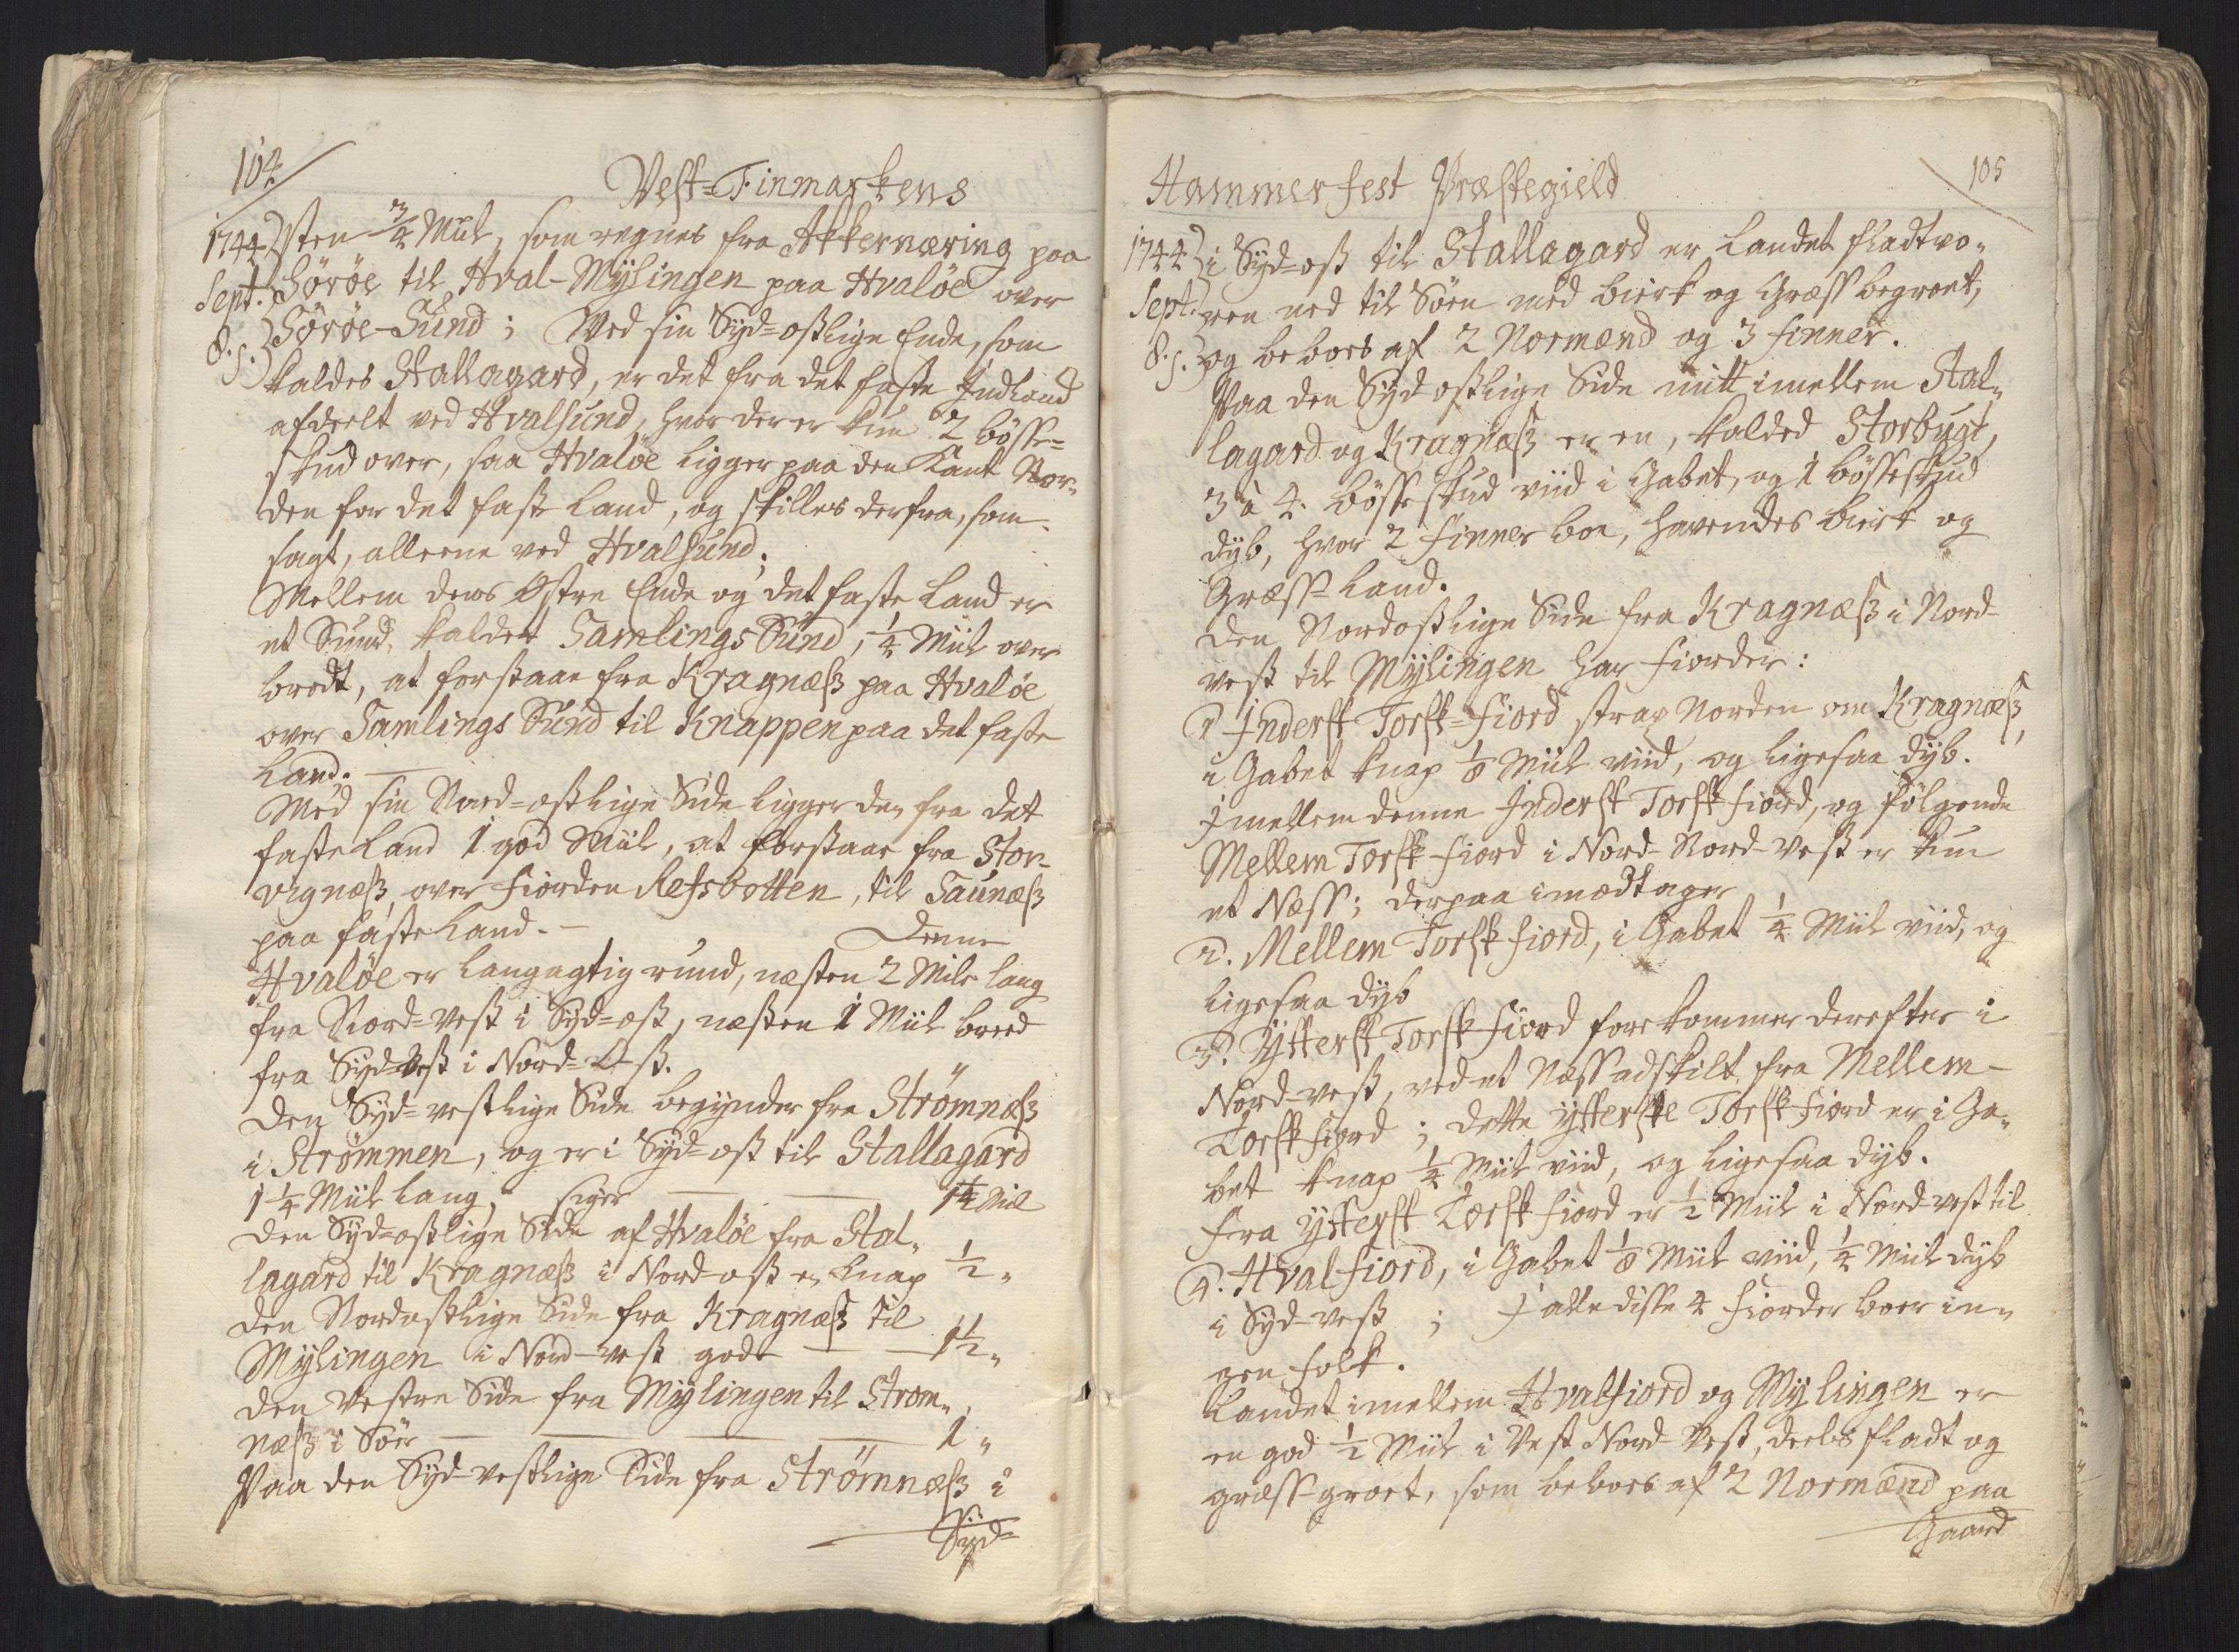 104
Vest=Finmarkens
1744 sten 3/4 Miil, som regnes fra Akkernæring paa
Sept. Sørøe til Hval-Mylingen paa Hvaløe over
8. s. Sørøe-Sund; Med sin Syd=ostlige Ende, som
kaldes Stallagard, er det fra det faste Indland
afdeelt ved Hvalsund, hvor der er kun 2 bösse=
skud over, saa Hvaløe ligger paa den Kant Nor„
den for det faste Land, og skilles derfra, som
sagt, alleene ved Hvalsund.
Mellem dens Østre Ende og det faste Land er
et Sund, kaldet Samlings Sund, 1/4 Miil over
bredt, at forstaae fra Kragnæss paa Hvaløe
over Samlings Sund til Knappen paa det faste
Land. —
Med sin Nord=ostlige Side ligger den fra det
faste Land 1 god Miil, at forstaae fra Stor-
vignæss over Fiorden Refsbotten, til Taunæss
paa faste Land. — Denne
Hvaløe er langagtig rund, næsten 2 Mile lang
fra Nord=Vest i Syd=ost, næsten 1 Miil breed
fra Syd-Vest i Nord=Ost.
Den Syd=vestlige Side begynder fra Strømnæss
i Strømmen, og er i Syd=ost til Stallagard
1 1/4 Miil lang, siger — — 1 1/4 Miil
Den Syd=ostlige Side af Hvaløe fra Stal„
lagard til Kragnæss i Nord-ost er knap 1/2 „
Den Nordostlige Side fra Kragnæss til
Mylingen i Nord-Vest god — — 1 1/2 „
Den Vestre Side fra Mylingen til Strom„
næss i Sör — — — — 1 „
Paa den Syd-vestlige Side fra Strømnæss i
Syd=
Hammerfest Præstegield
105
1744 i Syd=ost til Stallagard er Landet fladtvo„
Sept. ren ned til Söen med birk og Græss begroet,
8. s. og beboes af 2 Normænd og 3 finner.
Paa den Syd ostlige Side mitt imellem Stal„
lagard og Kragnæss er en, kalded Storbugt,
3 à 4. bösseskud viid i Gabet, og 1 bösseskud
dyb, hvor 2 Finner boe, havendes birk og
Græss-Land.
Den Nordostlige Side fra Kragnæss i Nord-
vest til Mylingen har Fiorder:
1 Inderst Torsk=Fiord strax Norden om Kragnæss,
i Gabet knap 1/8 Miil viid, og ligesaa dyb.
Imellem denne Inderst Torsk fiord, og følgende
Mellem Torsk-fiord i Nord-Nord-Vest er kun
et Næss; derpaa imodtager
2. Mellem Torsk fiord, i Gabet 1/4 Miil viid, og
ligesaa dyb
3. Ytterst Torsk fiord forekommer derefter i
Nord-vest, ved et Næss adskilt fra Mellem-
Torsk fiord; dette ytterste Torsk fiord er i Ga„
bet knap 1/4 Miil viid, og ligesaa dyb.
Fra Ytterst Torsk fiord er 1/2 Miil i Nord-vest til
4. Hvalfiord, i Gabet 1/8 Miil viid, 1/4 Miil dyb
i Syd-vest; I alle disse 4 Fiorder boer in„
gen folk.
Landet imellem Hvalfiord og Mylingen er
en god 1/2 Miil i Vest Nord Vest, deels fladt og
græss-groet, som beboes af 2 Normænd paa
Gaard